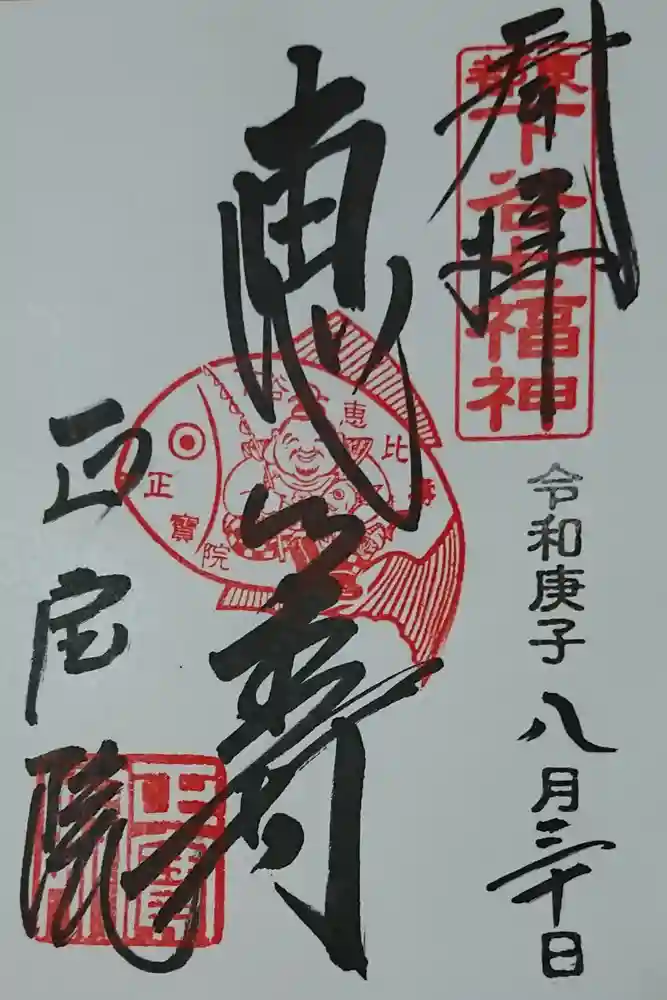 奉拝
東都
下谷七福神
令和庚子
八月三十日
恵比寿
下谷 恵比寿
正寶院
正宝院
正寶院